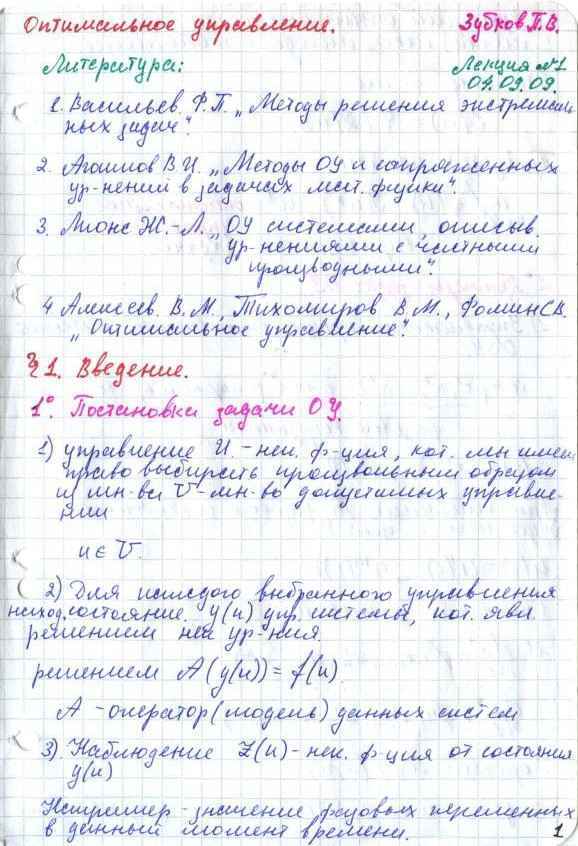 Оптимальное управление. Зубков П.В.
Литература: Лекция №1
04.09.09.
1. Васильев. Ф.П. „Методы решения экстремаль
ных задач".
2. Агошков В.И. „Методы ОУ и сопряженных
ур-нений в задачах мат. физики".
3. Лионс Ж.-Л. „ОУ системами, описыв.
ур-нениями с частными
производными".
4 Алексеев. В.М., Тихомиров В.М., Фомин С.В.
„Оптимальное управление".
§1. Введение.
1°. Постановка задачи ОУ
1) управление U. - нек. ф-ция, кот. мы имеем
право выбирать произвольным образом
из мн-ва U - мн-во допустимых управле-
ний
u ∈ U.
2) Для каждого выбранного управления
наход. состояние y(u) упр. системы, кот. явл.
решением нек ур-ния.
решением A(y(u)) = f(u)
A - оператор (модель) данных систем
3). Наблюдение Z(u) - нек. ф-ция от состояния
y(u)
Например - значение фазовых переменных
в данный момент времени. 1